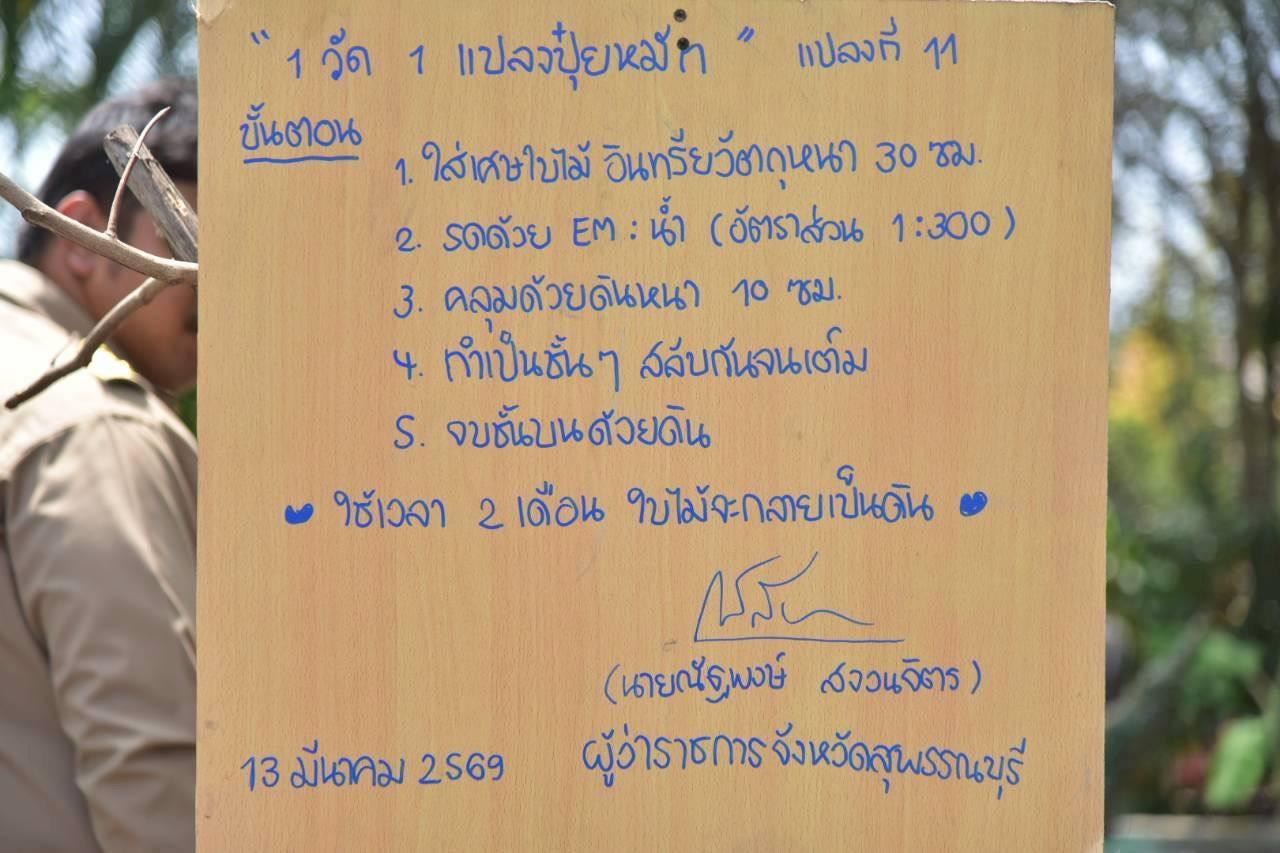 “ 1 วัด 1 แปลงปุ๋ยหมัก ” แปลงที่ 11
ขั้นตอน
1. ใส่เศษใบไม้ อินทรียวัตถุหนา 30 ซม.
2. รดด้วย EM : น้ำ (อัตราส่วน 1:300)
3. คลุมด้วยดินหนา 10 ซม.
4. ทำเป็นชั้นๆ สลับกันจนเต็ม
5. จบชั้นบนด้วยดิน
ใช้เวลา 2 เดือน ใบไม้จะกลายเป็นดิน
(นายณัฐพงษ์ สงวนจิตร)
13 มีนาคม 2569 ผู้ว่าราชการจังหวัดสุพรรณบุรี